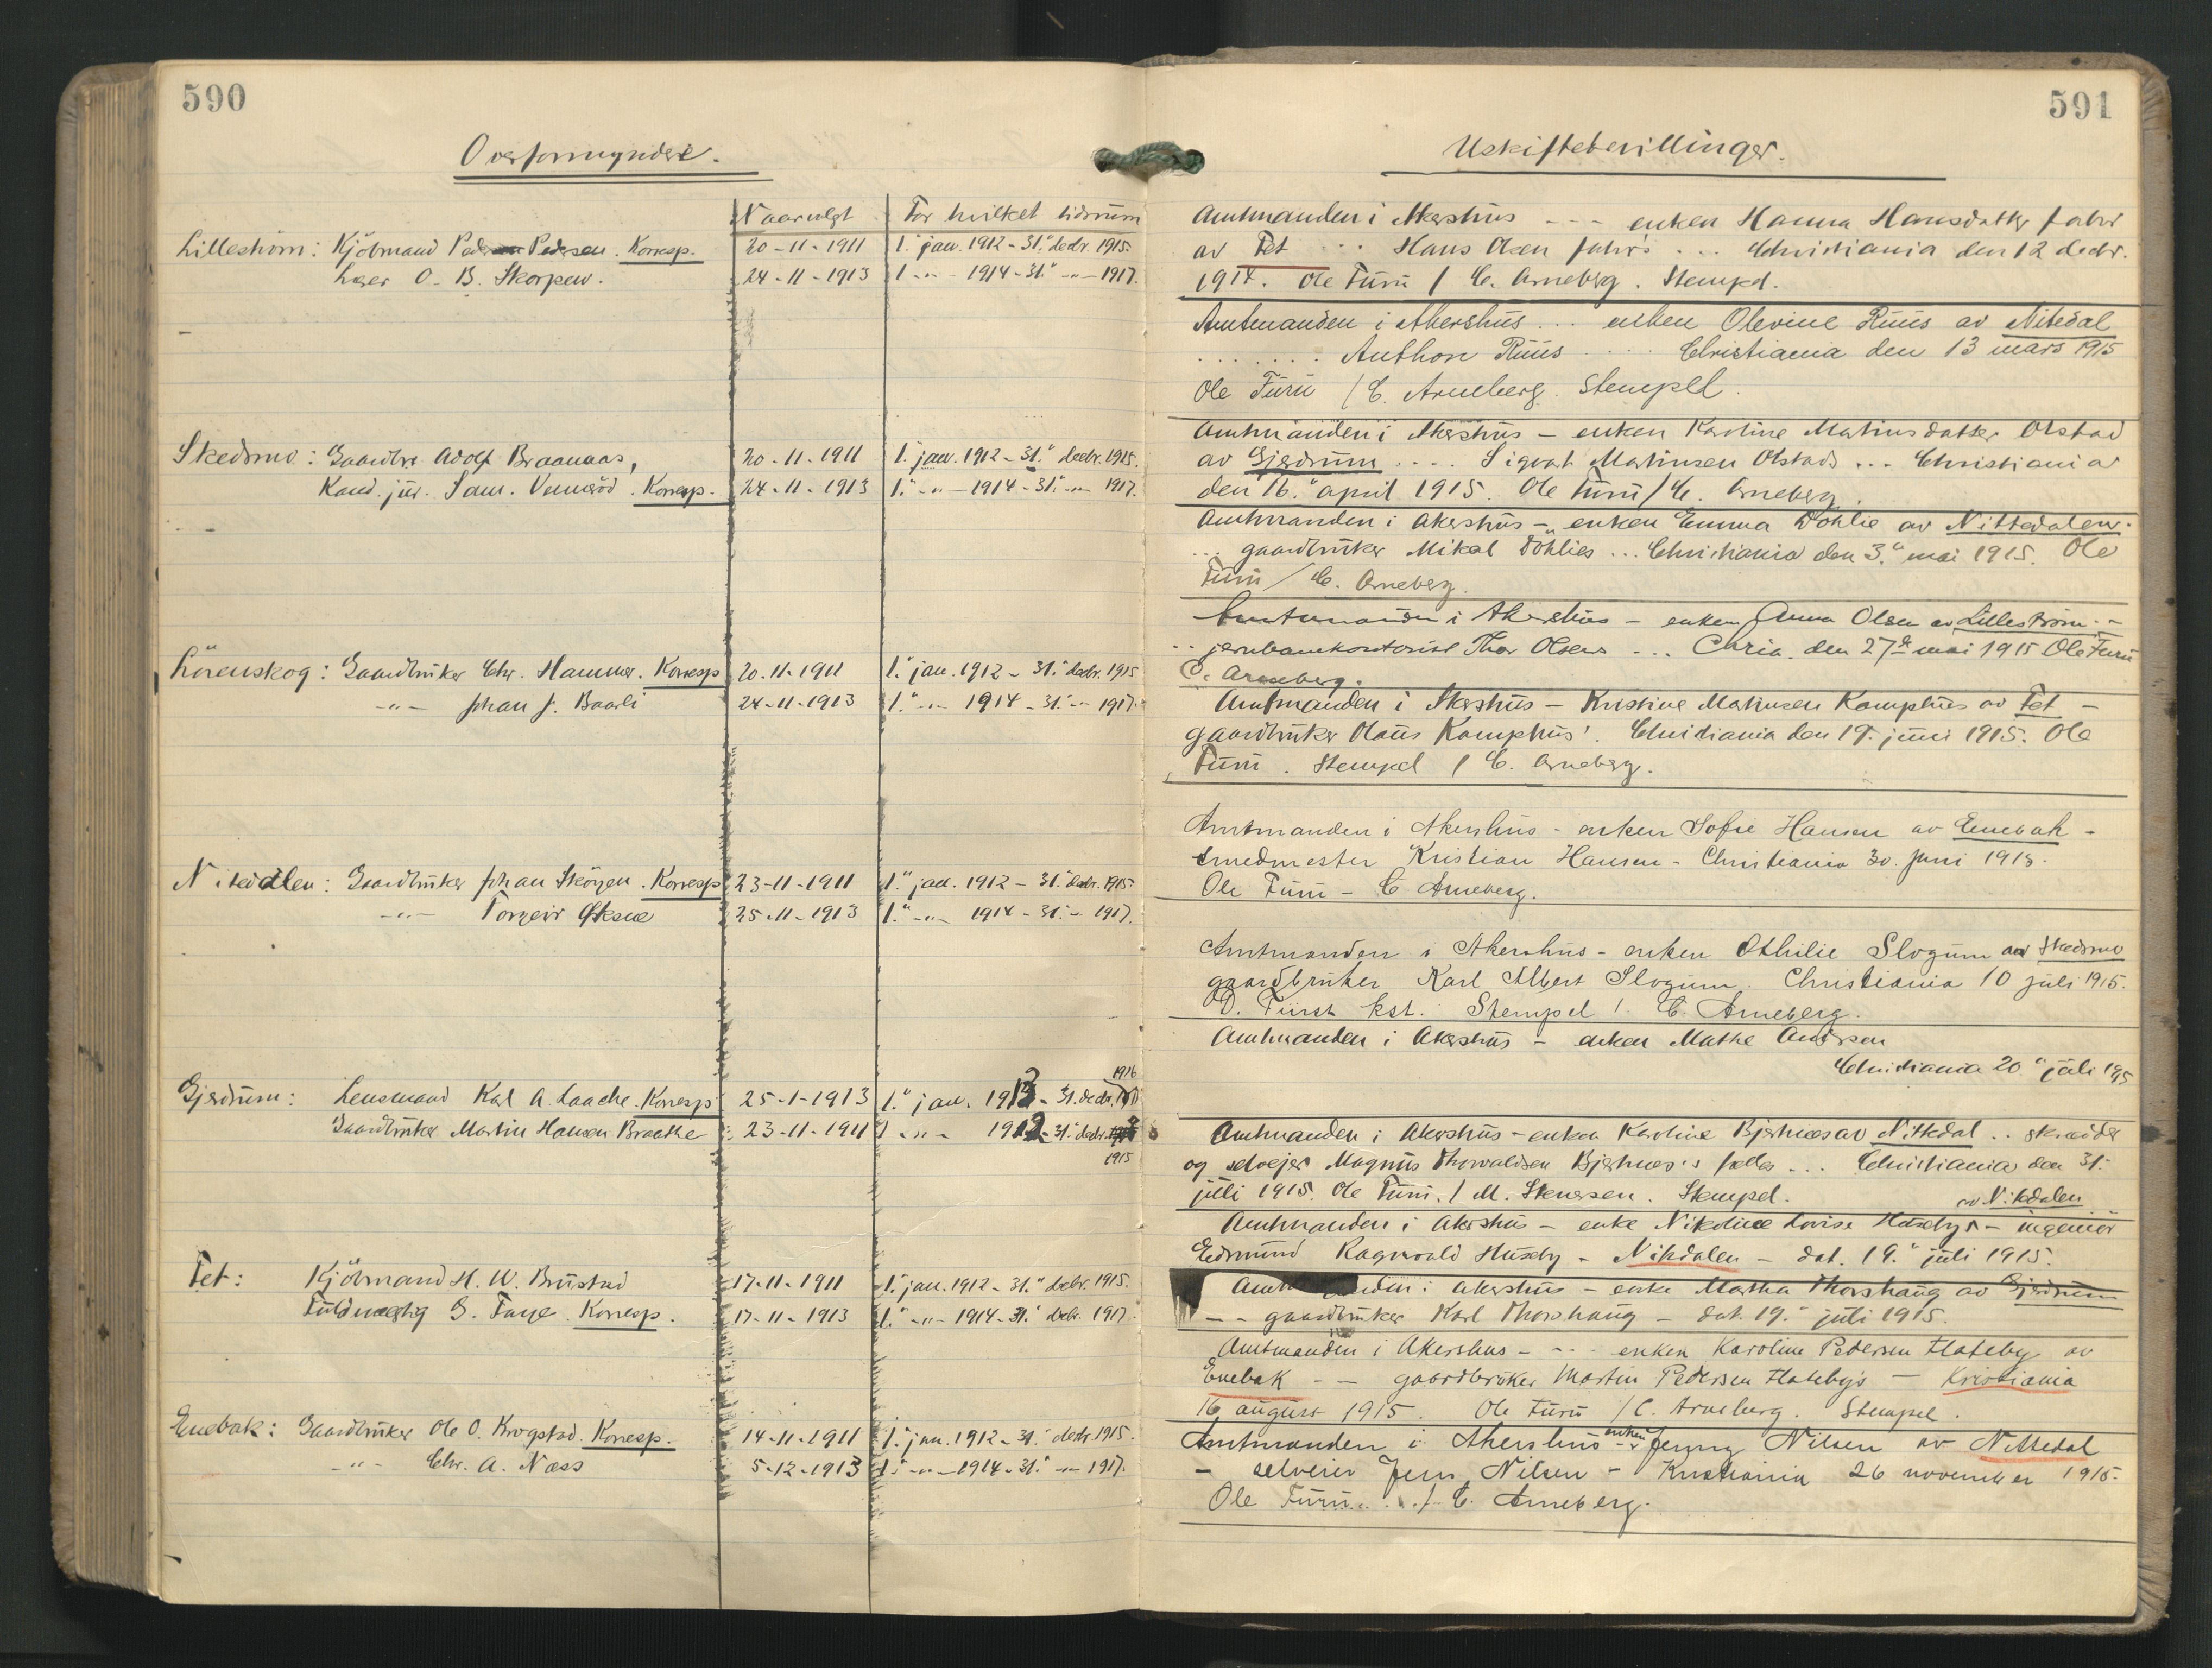 590
Overformyndere.
Naar valgt For hvilket tidsrum
Lilleström: Kjöbmand Peder Pedersen. Korresp. 20-11-1911 1. jan. 1912 - 31. decbr. 1915.
Læger O. B. Skorpen. 24-11-1913 1 -"- 1914 - 31." -"- 1917.
Skedsmo: Gaardbr. Adolf Braanaas, 20-11-1911 1. jan. 1912 - 31." decbr. 1915.
Kand. jur. Sam. Venneröd. Korresp. 24-11-1913 1." -"- 1914 - 31." -"- 1917.
Lörenskog: Gaardbruker Chr. Hammer. Korresp 20.11.1911 1." jan. 1912 - 31." decbr. 1915
-"- Johan J. Baarli 24-11-1913 1." -"- 1914 - 31." -"- 1917.
Nitedalen: Gaardbruker Johan Skögen. Korresp 23-11-1911 1." jan. 1912 - 31." decbr. 1915.
-"- Torgeir 25-11-1913 1." -"- 1914 - 31." -"- 1917.
1916
Gjerdrum: Lensmand Karl A. Laache. Korresp 25-1-1913 1." jan. 1913 - 31. decbr.
Gaardbruker Martin Hansen Braathe 23-11-1911 1 -"- 1912 - 31." decbr.
1915
Fet: Kjöbmand H. W. Brustad 17-11-1911 1. jan. 1912 - 31." decbr. 1915.
Fuldmægtig G. Faye. Korresp. 17-11-1913 1." -"- 1914 - 31." decbr. 1917.
Enebak: Gaardbruker Ole O. Krogstad. Korresp. 14-11-1911 1." jan. 1912 - 31." decbr. 1915.
-"- Chr. A. Næss 5-12-1913 1." -"- 1914 - 31." -"- 1917.
591
Uskiftebevillinger.
Amtmanden i Akershus - - - enken Hanna Hansdatter Jahr
av Fet ... Hans Olsen Jahr's ... Christiania den 12 decbr.
1914. Ole Furu / C. Arneberg. Stempel.
Amtmanden i Akershus ... enken Olevine Ruus av Nitedal
....... Anthon Ruus .... Christiania den 13 mars 1915
Ole Furu / C. Arneberg. Stempel.
Amtmanden i Akershus - enken Karoline Martinsdatter Olstad
av Gjerdrum .... Sigvat Martinsen Olstads ... Christiania
den 16." april 1915. Ole Furu / C. Arneberg.
Amtmanden i Akershus - enken Emma Döhlie av Nittedalen.
... gaardbruker Mikal Döhlies ... Christiania den 3." mai 1915. Ole
Furu / C. Arneberg.
Amtmanden i Akershus - enken Anna Olsen av Lilleström. -
.. jernbanekontorist Thor Olsens ... Chria. den 27de mai 1915 Ole Furu
C. Arneberg.
Amtmanden i Akershus - Kristine Martinsen Kamphus av Fet -
gaardbruker Olaus Kamphus'. Christiania den 19. juni 1915. Ole
Furu. Stempel / C. Arneberg.
Amtmanden i Akershus - enken Sofie Hansen av Enebak -
Smedmester Kristian Hansen - Christiania 30. juni 1915.
Ole Furu - C Arneberg.
Amtmanden i Akershus - enken Othilie Slogum av Skedsmo
gaardbruker Karl Albert Slogum. Christiania 10 juli 1915.
D. Fürst kst. Stempel / C Arneberg.
Amtmanden i Akershus - enken Mathe Andersen
Christiania 20." juli 1915
Amtmanden i Akershus - enken Karoline Bjertnæs av Nittedal .. skrædder
og selveier Magnus Thorvaldsen Bjertnæs's fælles ... Christiania den 31.
juli 1915. Ole Furu. / M. Stenersen. Stempel. av Nitedalen
Amtmanden i Akershus - enke Nikoline Lovise Huseby - ingeniör
Edmund Ragnvald Huseby - Nitedalen - dat. 19." juli 1915.
Amtmanden i Akershus - enke Martha Thorshaug av Gjerdrum
- - gaardbruker Karl Thorshaug - dat. 19." juli 1915.
Amtmanden i Akershus - - - enken Karoline Pedersen Flateby av
Enebak - - gaardbruker Martin Pedersen Flateby's - Kristiania
16 august 1915. Ole Furu / C. Arneberg. Stempel.
Amtmanden i Akershus - enken Jenny Nilsen av Nittedal
- selveier Jens Nilsen - Kristiania 26 november 1915.
Ole Furu.. / C. Arneberg.